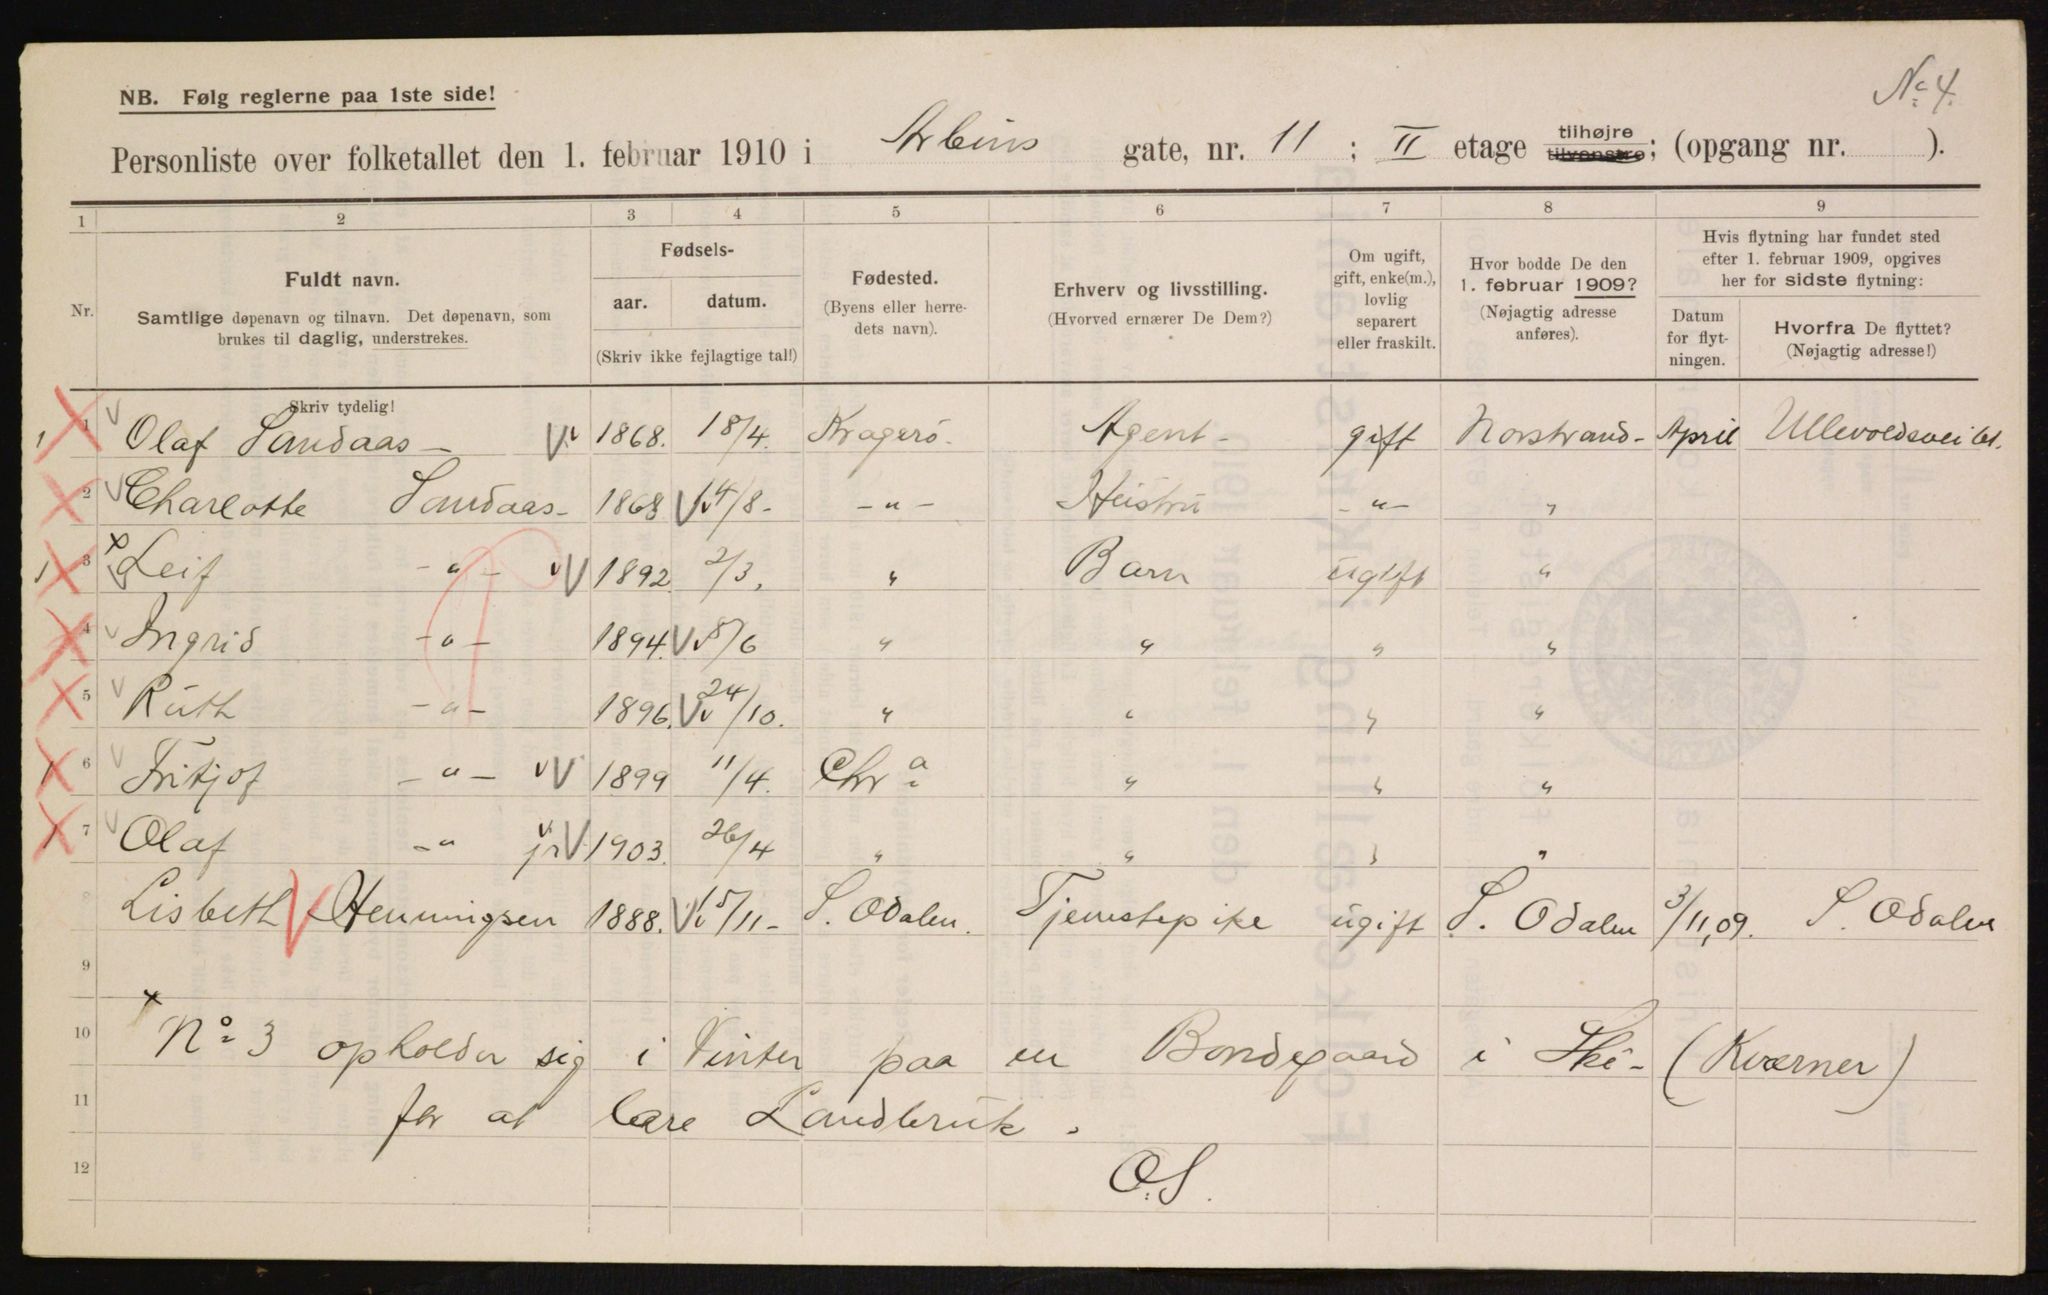 No 4.
NB. Følg reglerne paa 1ste side!
Personliste over folketallet den 1. februar 1910 i Arbins gate, nr. 11 ; II etage tilhøjre tilvenstre; (opgang nr. ).
1 2 3 4 5 6 7 8 9
Nr.
Fuldt navn.
Samtlige døpenavn og tilnavn. Det døpenavn, som
brukes til daglig, understrekes.
Skriv tydelig!
Fødsels-
aar. datum.
(Skriv ikke fejlagtige tal!)
Fødested.
(Byens eller herre-
dets navn).
Erhverv og livsstilling.
(Hvorved ernærer De Dem?)
Om ugift,
gift, enke(m.),
lovlig
separert
eller fraskilt.
Hvor bodde De den
1. februar 1909?
(Nøjagtig adresse
anføres).
Hvis flytning har fundet sted
efter 1. februar 1909, opgives
her for sidste flytning:
Datum
for flyt-
ningen.
Hvorfra De flyttet?
(Nøjagtig adresse!)
1 Olaf Sandaas - 1868. 18/4. Kragerö - Agent - gift Norstrand - April Ullevoldsvei 61.
2 Charlotte Sandaas - 1868 14/8 - - " - Hüstrü - " - "
3 Leif - " - 1892 2/3. " Barn ugift "
4 Ingrid - " - 1894. 8/6 " " " "
5 Rüth - " - 1896. 24/10. " " " "
6 Fritjof - " - 1899 11/4. Chra " " "
7 Olaf - " jr 1903. 26/4 " " " "
8 Lisbeth Henningsen 1888. 15/11 - S. Odalen. Tjenestepike ugift S. Odalen 3/11,09. S. Odalen
9
10 x No 3 opholder sig i Vinter paa en Bondegaard i Ski - (Kværner)
11 for at lære Landbrük.
12 O.S.